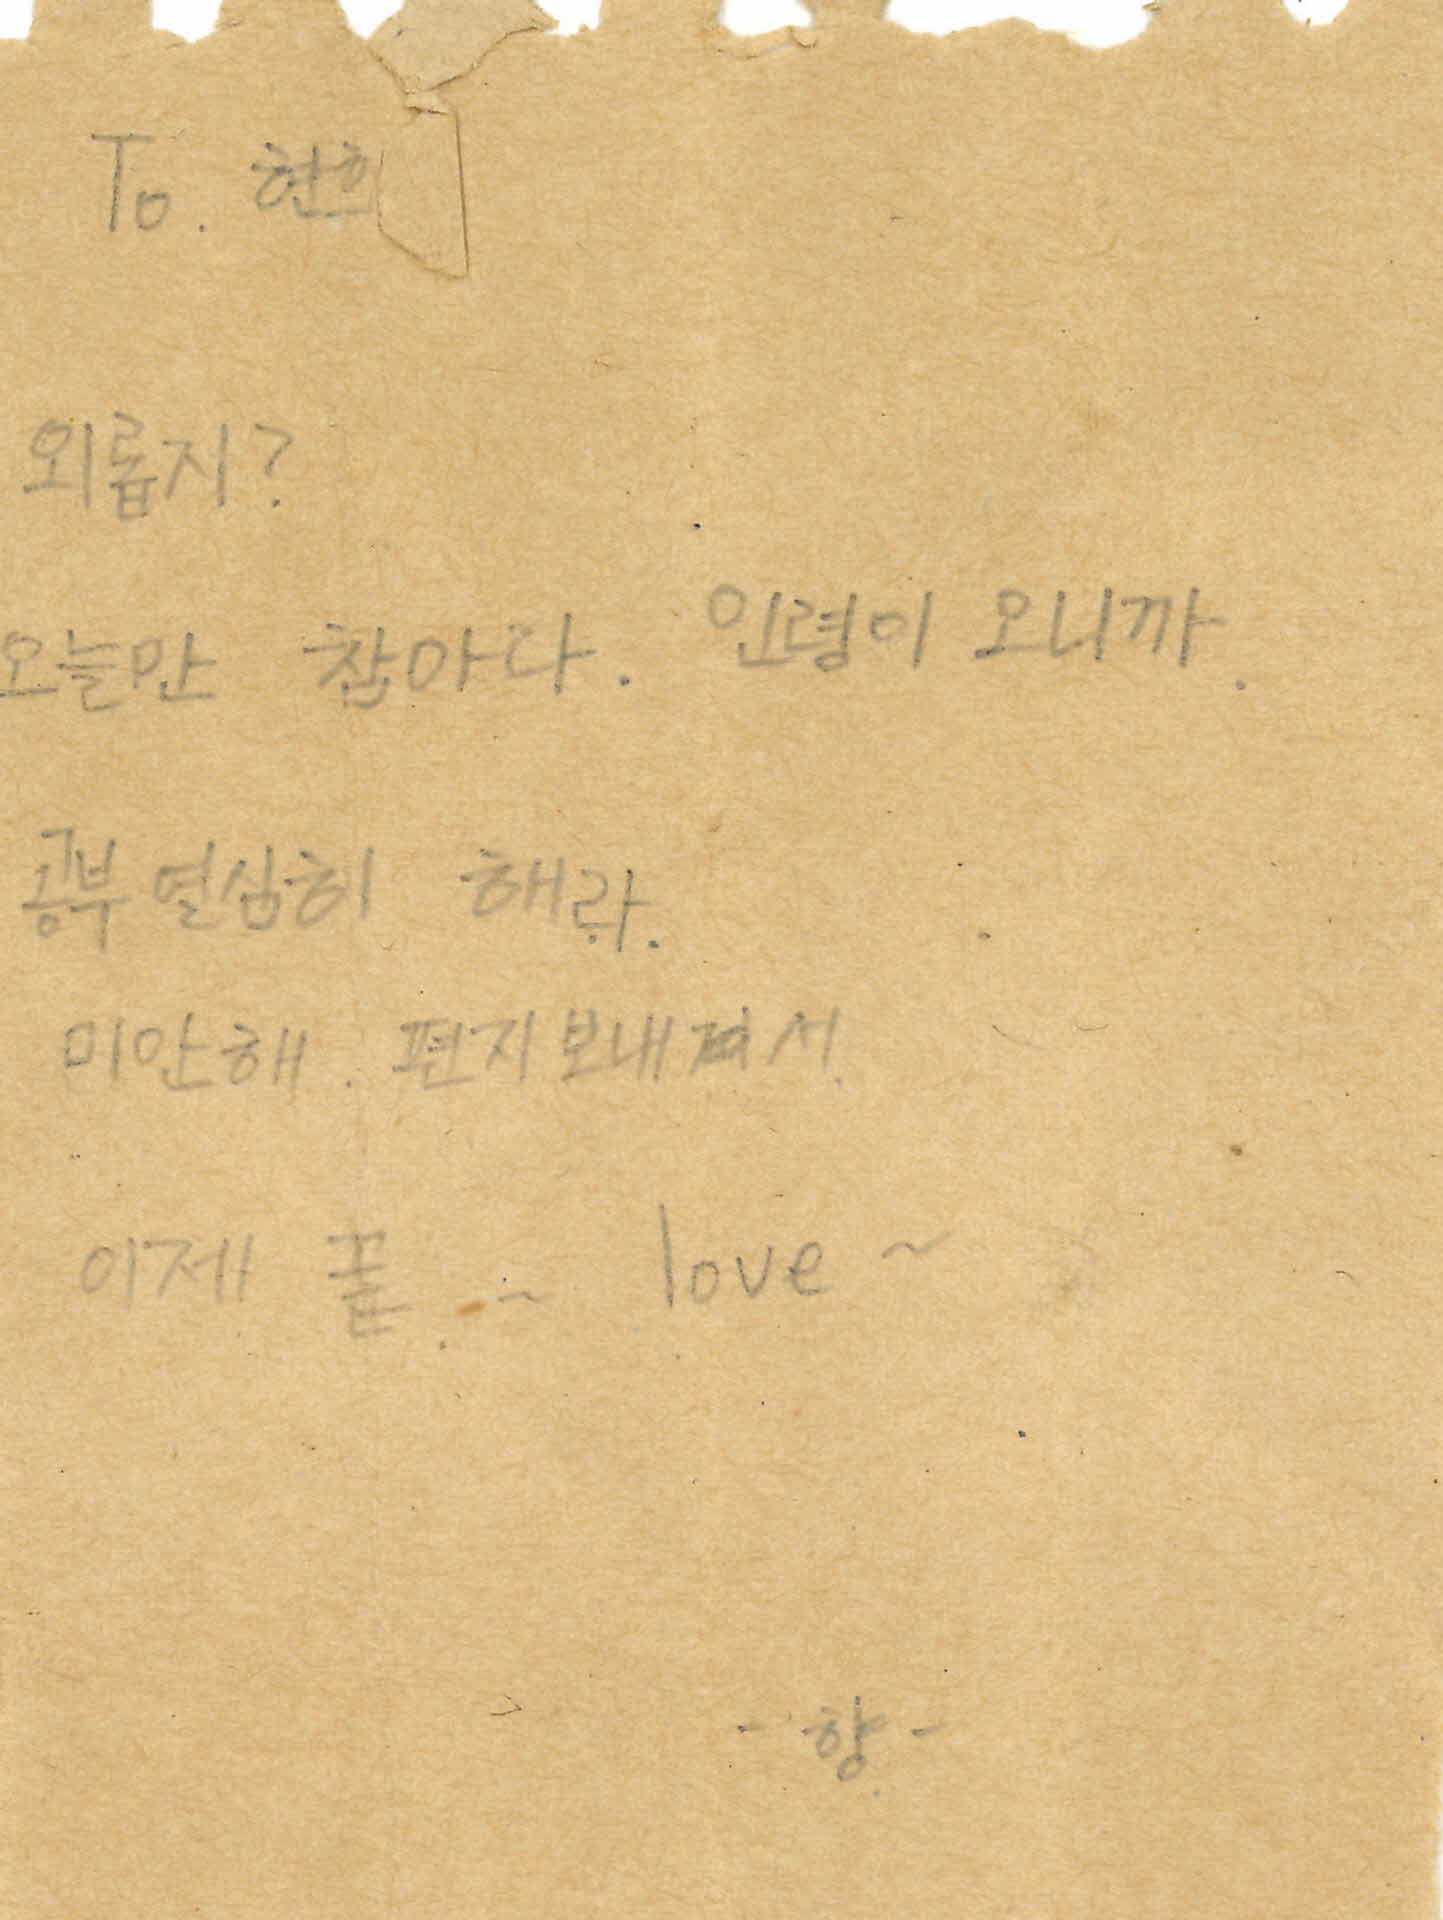 To. 현희
외롭지?
오늘만 참아라. 인령이 오니까.
공부 열심히 해라.
미안해. 편지 보내져서.
이제 끝. ~ love ~
- 향 -